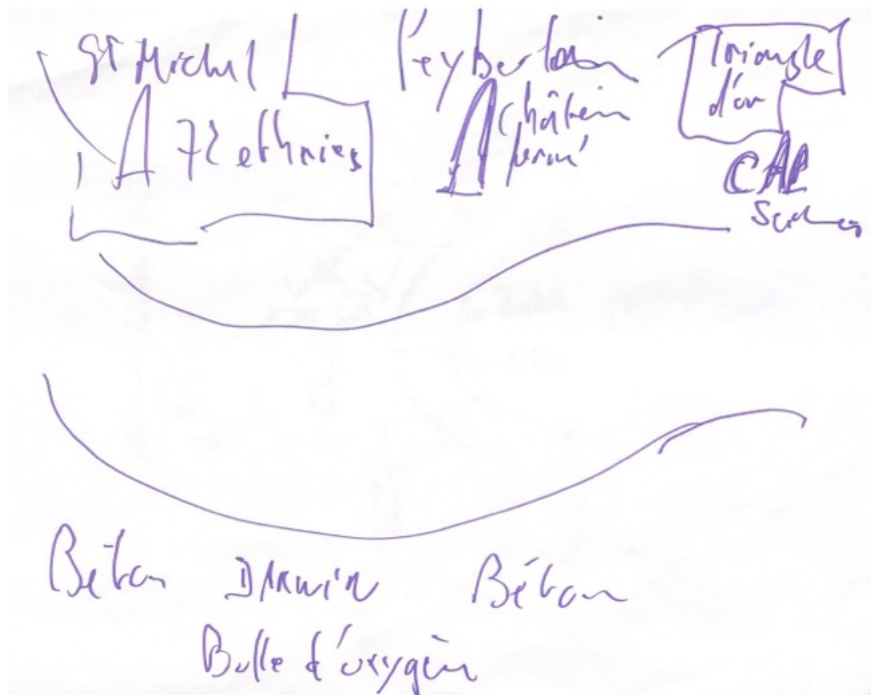 St Michel
72 ethnies
Peyberlan
Château
fermé
Triangle
d'or
CAP
Sciences
Béton
DARWIN
Béton
Bulle d'oxygèn